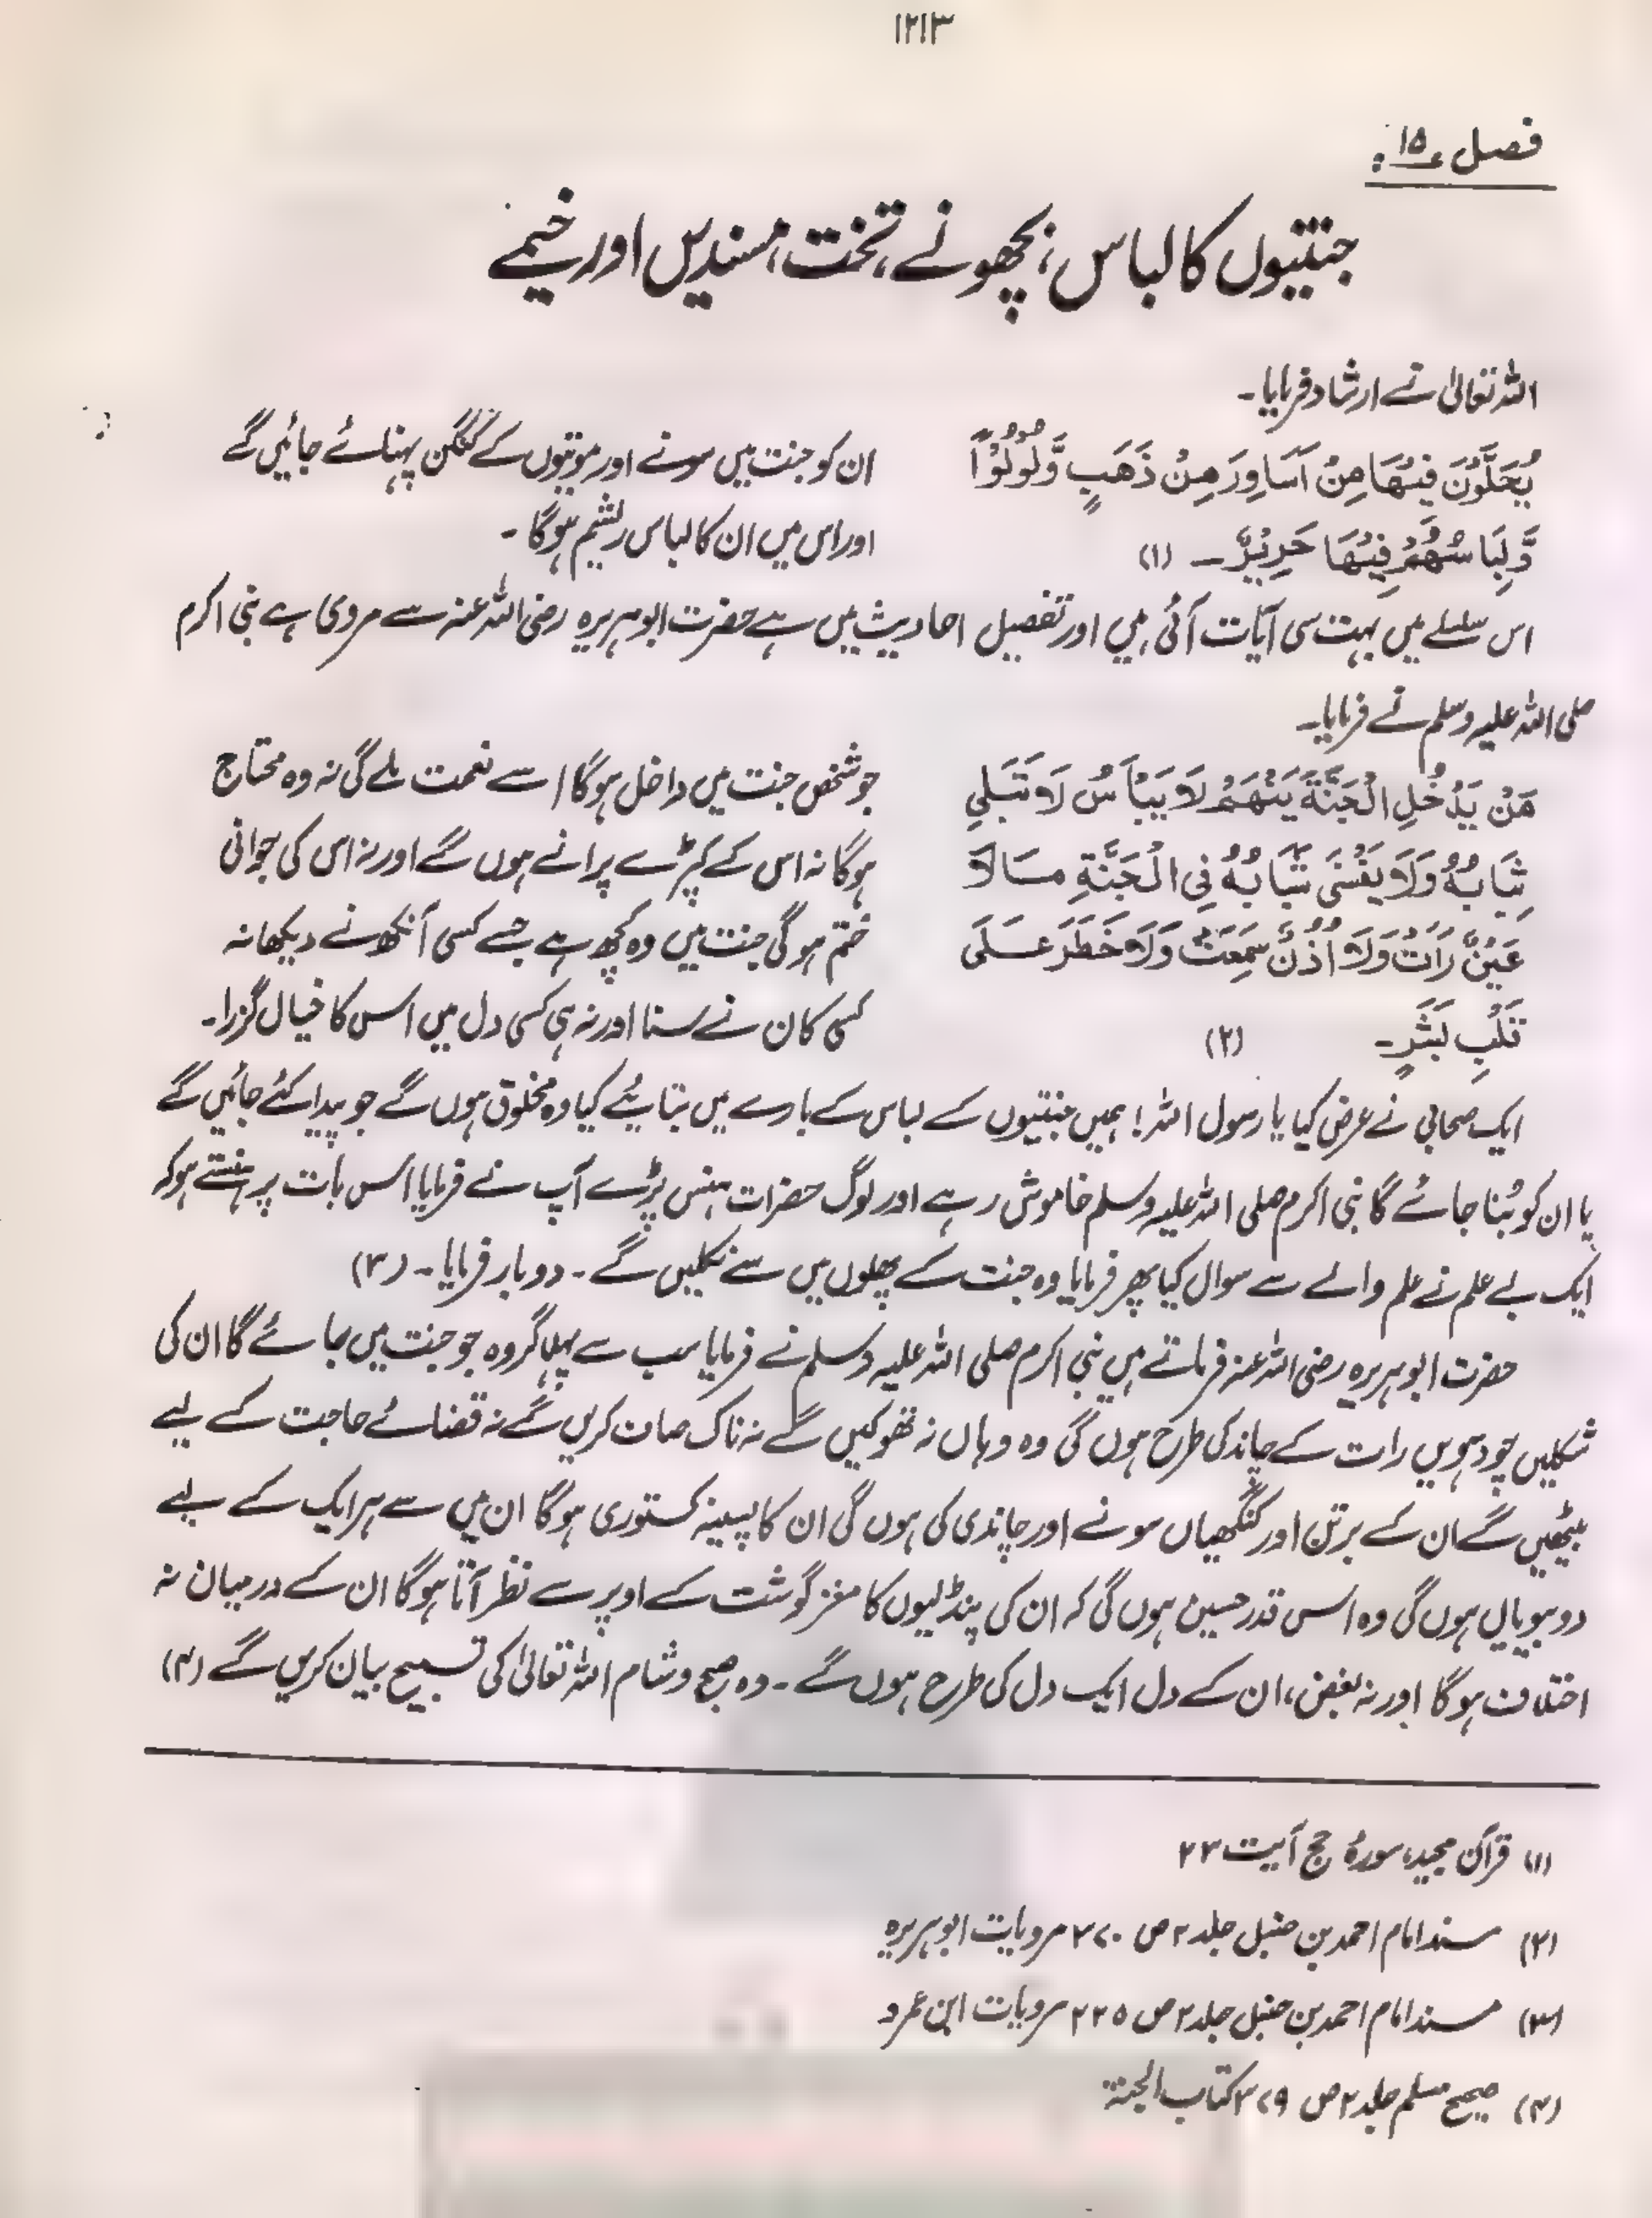 ۱۲۱۳
فصل ۱۵:
جنتیوں کا لباس، بچھونے، تخت، مسندیں اور خیمے
اللہ تعالیٰ نے ارشاد فرمایا۔
یُحَلَّوْنَ فِیْهَا مِنْ اَسَاوِرَ مِنْ ذَهَبٍ وَّلُؤْلُؤًا
وَّلِبَاسُهُمْ فِیْهَا حَرِیْرٌ۔ (۱)
ان کو جنت میں سونے اور موتیوں کے کنگن پہنائے جائیں گے
اور اس میں ان کا لباس ریشم ہوگا۔
اس سلسلے میں بہت سی آیات آئی ہیں اور تفصیل احادیث میں ہے حضرت ابوہریرہ رضی اللہ عنہ سے مروی ہے نبی اکرم
صلی اللہ علیہ وسلم نے فرمایا۔
مَنْ یَدْخُلِ الْجَنَّةَ یَنْهَمْ لَا یَبْأَسُ لَا تَبْلٰی
ثِیَابُهُ وَلَا یَفْنٰی شَبَابُهُ فِی الْجَنَّةِ مَا لَا
عَیْنٌ رَاَتْ وَلَا اُذُنٌ سَمِعَتْ وَلَا خَطَرَ عَلٰی
قَلْبِ بَشَرٍ۔ (۲)
جو شخص جنت میں داخل ہوگا اسے نعمت ملے گی نہ وہ محتاج
ہوگا نہ اس کے کپڑے پرانے ہوں گے اور نہ اس کی جوانی
ختم ہوگی جنت میں وہ کچھ ہے جسے کسی آنکھ نے دیکھا نہ
کسی کان نے سنا اور نہ ہی کسی دل میں اس کا خیال گزرا۔
ایک صحابی نے عرض کیا یا رسول اللہ! ہمیں جنتیوں کے لباس کے بارے میں بتائیے کیا وہ مخلوق ہوں گے جو پیدا کئے جائیں گے
یا ان کو بُنا جائے گا نبی اکرم صلی اللہ علیہ وسلم خاموش رہے اور لوگ حضرات ہنس پڑے آپ نے فرمایا اس بات پر ہنستے ہو کہ
ایک بے علم نے علم والے سے سوال کیا پھر فرمایا وہ جنت کے پھلوں میں سے نکلیں گے۔ دوبار فرمایا۔ (۳)
حضرت ابوہریرہ رضی اللہ عنہ فرماتے ہیں نبی اکرم صلی اللہ علیہ وسلم نے فرمایا سب سے پہلا گروہ جو جنت میں جائے گا ان کی
شکلیں چودہویں رات کے چاند کی طرح ہوں گی وہ وہاں نہ تھوکیں گے نہ ناک صاف کریں گے نہ قضائے حاجت کے لیے
بیٹھیں گے ان کے برتن اور کنگھیاں سونے اور چاندی کی ہوں گی ان کا پسینہ کستوری ہوگا ان میں سے ہر ایک کے لیے
دو بیویاں ہوں گی وہ اس قدر حسین ہوں گی کہ ان کی پنڈلیوں کا مغز گوشت کے اوپر سے نظر آتا ہوگا ان کے درمیان نہ
اختلاف ہوگا اور نہ بغض، ان کے دل ایک دل کی طرح ہوں گے۔ وہ صبح و شام اللہ تعالیٰ کی تسبیح بیان کریں گے (۴)
(۱) قرآن مجید، سورۂ حج آیت ۲۳
(۲) مسند امام احمد بن حنبل جلد ۲ ص ۳۷۰ مرویات ابوہریرہ
(۳) مسند امام احمد بن حنبل جلد ۲ ص ۲۲۵ مرویات ابن عمرو
(۴) صحیح مسلم جلد ۲ ص ۳۷۹ کتاب الجنۃ